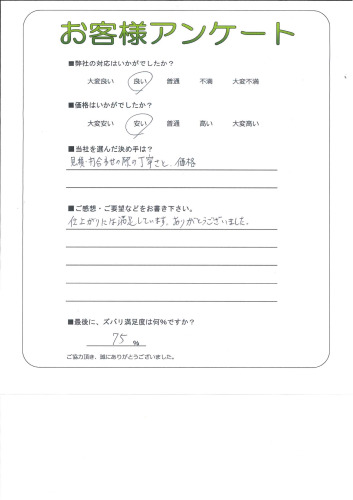 お客様アンケート
■弊社の対応はいかがでしたか?
大変良い 良い 普通 不満 大変不満
■価格はいかがでしたか?
大変安い 安い 普通 高い 大変高い
■当社を選んだ決め手は?
見積・打合わせの際の丁寧さと、価格
■ご感想・ご要望などをお書き下さい。
仕上がりには満足しています。ありがとうございました。
■最後に、ズバリ満足度は何%ですか?
75 %
ご協力頂き、誠にありがとうございました。